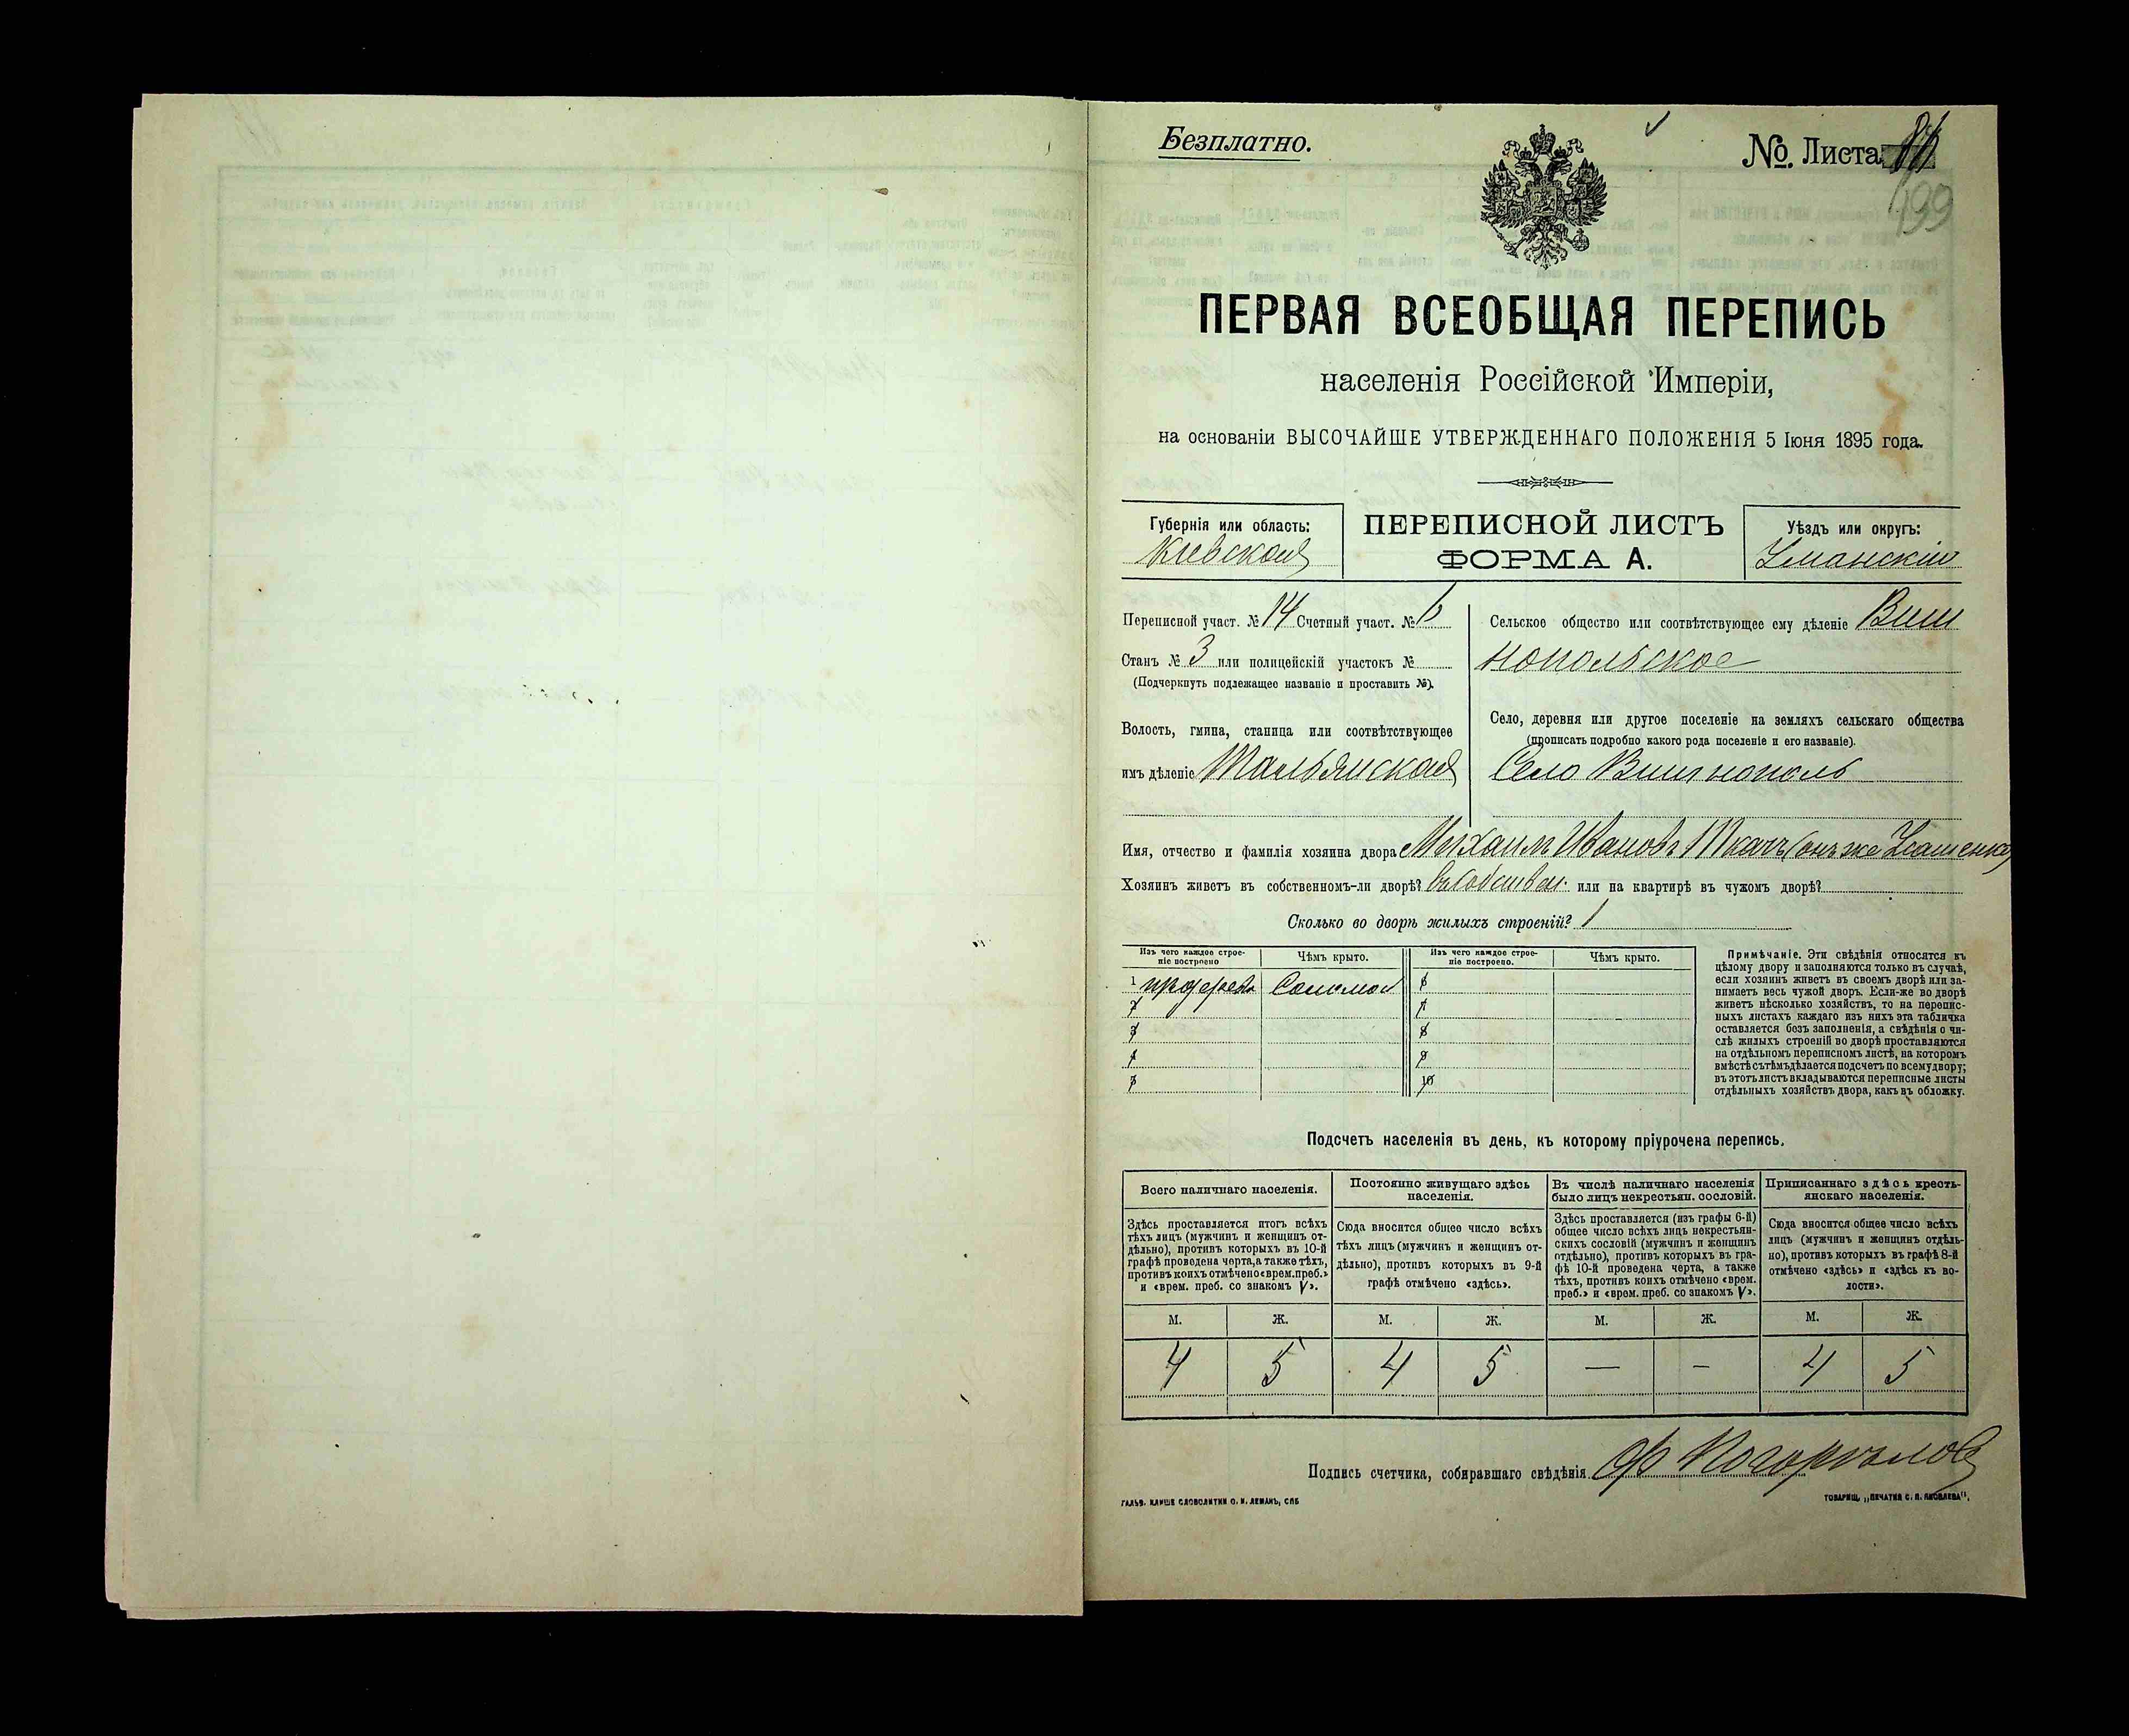 Безплатно.
№. Листа
199
ПЕРВАЯ ВСЕОБЩАЯ ПЕРЕПИСЬ
населенія Россійской Имперіи,
на основаніи ВЫСОЧАЙШЕ УТВЕРЖДЕННАГО ПОЛОЖЕНІЯ 5 Іюня 1895 года.
Губернія или область:
Кіевская
ПЕРЕПИСНОЙ ЛИСТЪ
ФОРМА А.
Уѣздъ или округъ:
Уманскій
Переписной участ. № 14 Счетный участ. №
Станъ № 3 или полицейскій участокъ №
(Подчеркнуть подлежащее названіе и проставить №).
Волость, гмина, станица или соотвѣтствующее
имъ дѣленіе Тальянская
Сельское общество или соотвѣтствующее ему дѣленіе Виш
нопольское
Село, деревня или другое поселеніе на земляхъ сельскаго общества
(прописать подробно какого рода поселеніе и его названіе).
Село Вишнополь
Имя, отчество и фамилія хозяина двора Михаилъ Ивановъ Ткачъ (онъ же
Хозяинъ живетъ въ собственномъ-ли дворѣ? въ собствен. или на квартирѣ въ чужомъ дворѣ?
Сколько во дворѣ жилыхъ строеній? 1
Изъ чего каждое строе-
ніе построено
Чѣмъ крыто.
Изъ чего каждое строе-
ніе построено.
Чѣмъ крыто.
1 Соломой 6
2 7
3 8
4 9
5 10
Примѣчаніе. Эти свѣдѣнія относятся къ
цѣлому двору и заполняются только въ случаѣ,
если хозяинъ живетъ въ своемъ дворѣ или за-
нимаетъ весь чужой дворъ. Если-же во дворѣ
живетъ нѣсколько хозяйствъ, то на перепис-
ныхъ листахъ каждаго изъ нихъ эта табличка
оставляется безъ заполненія, а свѣдѣнія о чи-
слѣ жилыхъ строеній во дворѣ проставляются
на отдѣльномъ переписномъ листѣ, на которомъ
вмѣстѣ съ тѣмъ дѣлается подсчетъ по всему двору;
въ этотъ листъ вкладываются переписные листы
отдѣльныхъ хозяйствъ двора, какъ въ обложку.
Подсчетъ населенія въ день, къ которому пріурочена перепись.
Всего наличнаго населенія.
Здѣсь проставляется итогъ всѣхъ
тѣхъ лицъ (мужчинъ и женщинъ от-
дѣльно), противъ которыхъ въ 10-й
графѣ проведена черта, а также тѣхъ,
противъ коихъ отмѣчено «врем. преб.»
и «врем. преб. со знакомъ V».
Постоянно живущаго здѣсь
населенія.
Сюда вносится общее число всѣхъ
тѣхъ лицъ (мужчинъ и женщинъ от-
дѣльно), противъ которыхъ въ 9-й
графѣ отмѣчено «здѣсь».
Въ числѣ наличнаго населенія
было лицъ некрестьян. сословій.
Здѣсь проставляется (изъ графы 6-й)
общее число всѣхъ лицъ некрестьян-
скихъ сословій (мужчинъ и женщинъ
отдѣльно), противъ которыхъ въ гра-
фѣ 10-й проведена черта, а также
тѣхъ, противъ коихъ отмѣчено «врем.
преб.» и «врем. преб. со знакомъ V».
Приписаннаго здѣсь кресть-
янскаго населенія.
Сюда вносится общее число всѣхъ
лицъ (мужчинъ и женщинъ отдѣль-
но), противъ которыхъ въ графѣ 8-й
отмѣчено «здѣсь» и «здѣсь къ во-
лости».
М. Ж. М. Ж. М. Ж. М. Ж.
4 5 4 5 — – 4 5
Подпись счетчика, собиравшаго свѣдѣнія.
ГАЛЬВ. КЛИШЕ СЛОВОЛИТНИ О. И. ЛЕМАНЪ, СПБ
ТОВАРИЩ. „ПЕЧАТНЯ С. П. ЯКОВЛЕВА“.